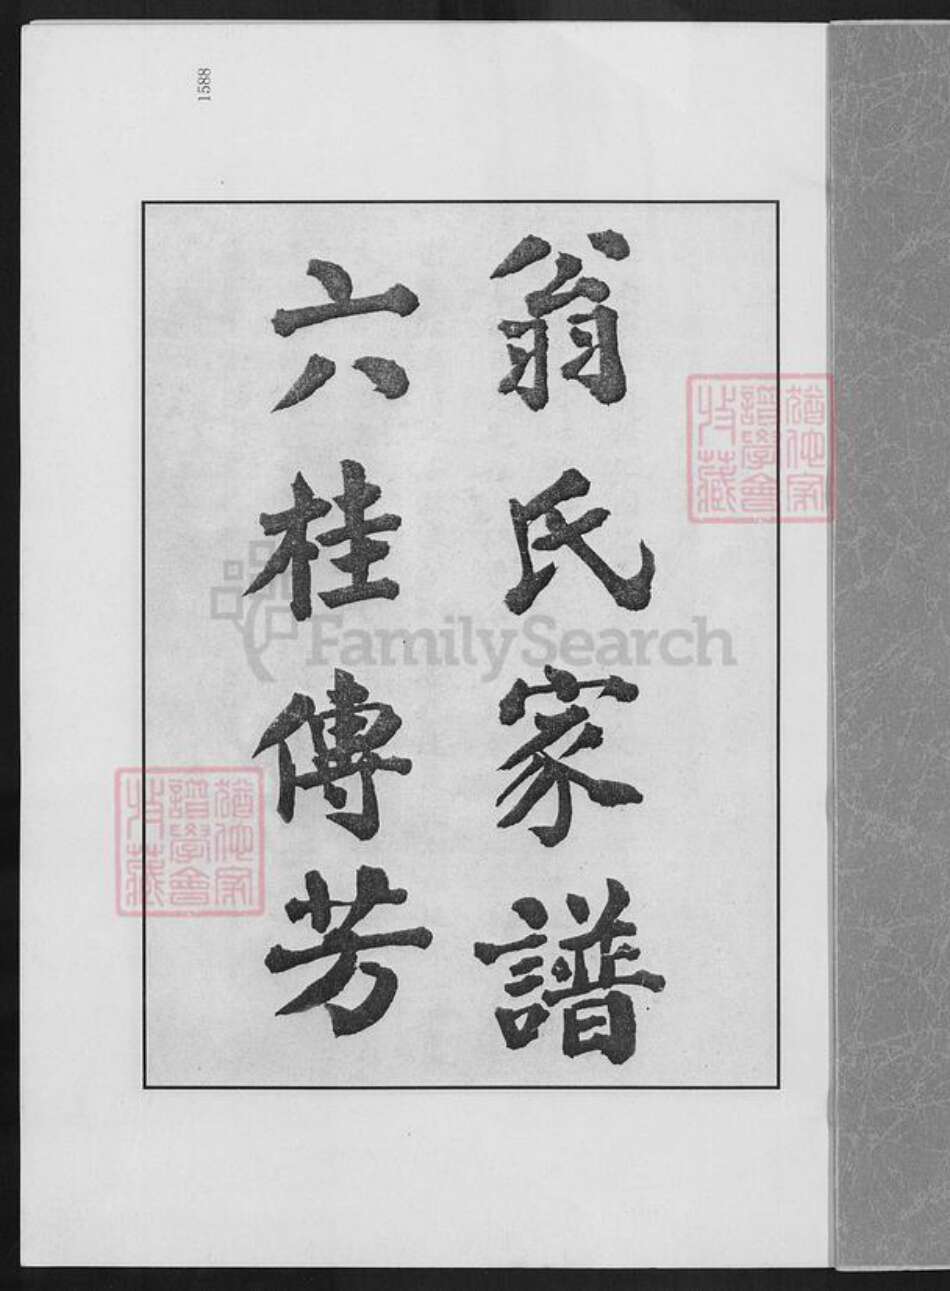 1588
翁氏家譜
六桂傳芳
猶他家
譜學會
收藏
猶他家
譜學會
收藏
FamilySearch